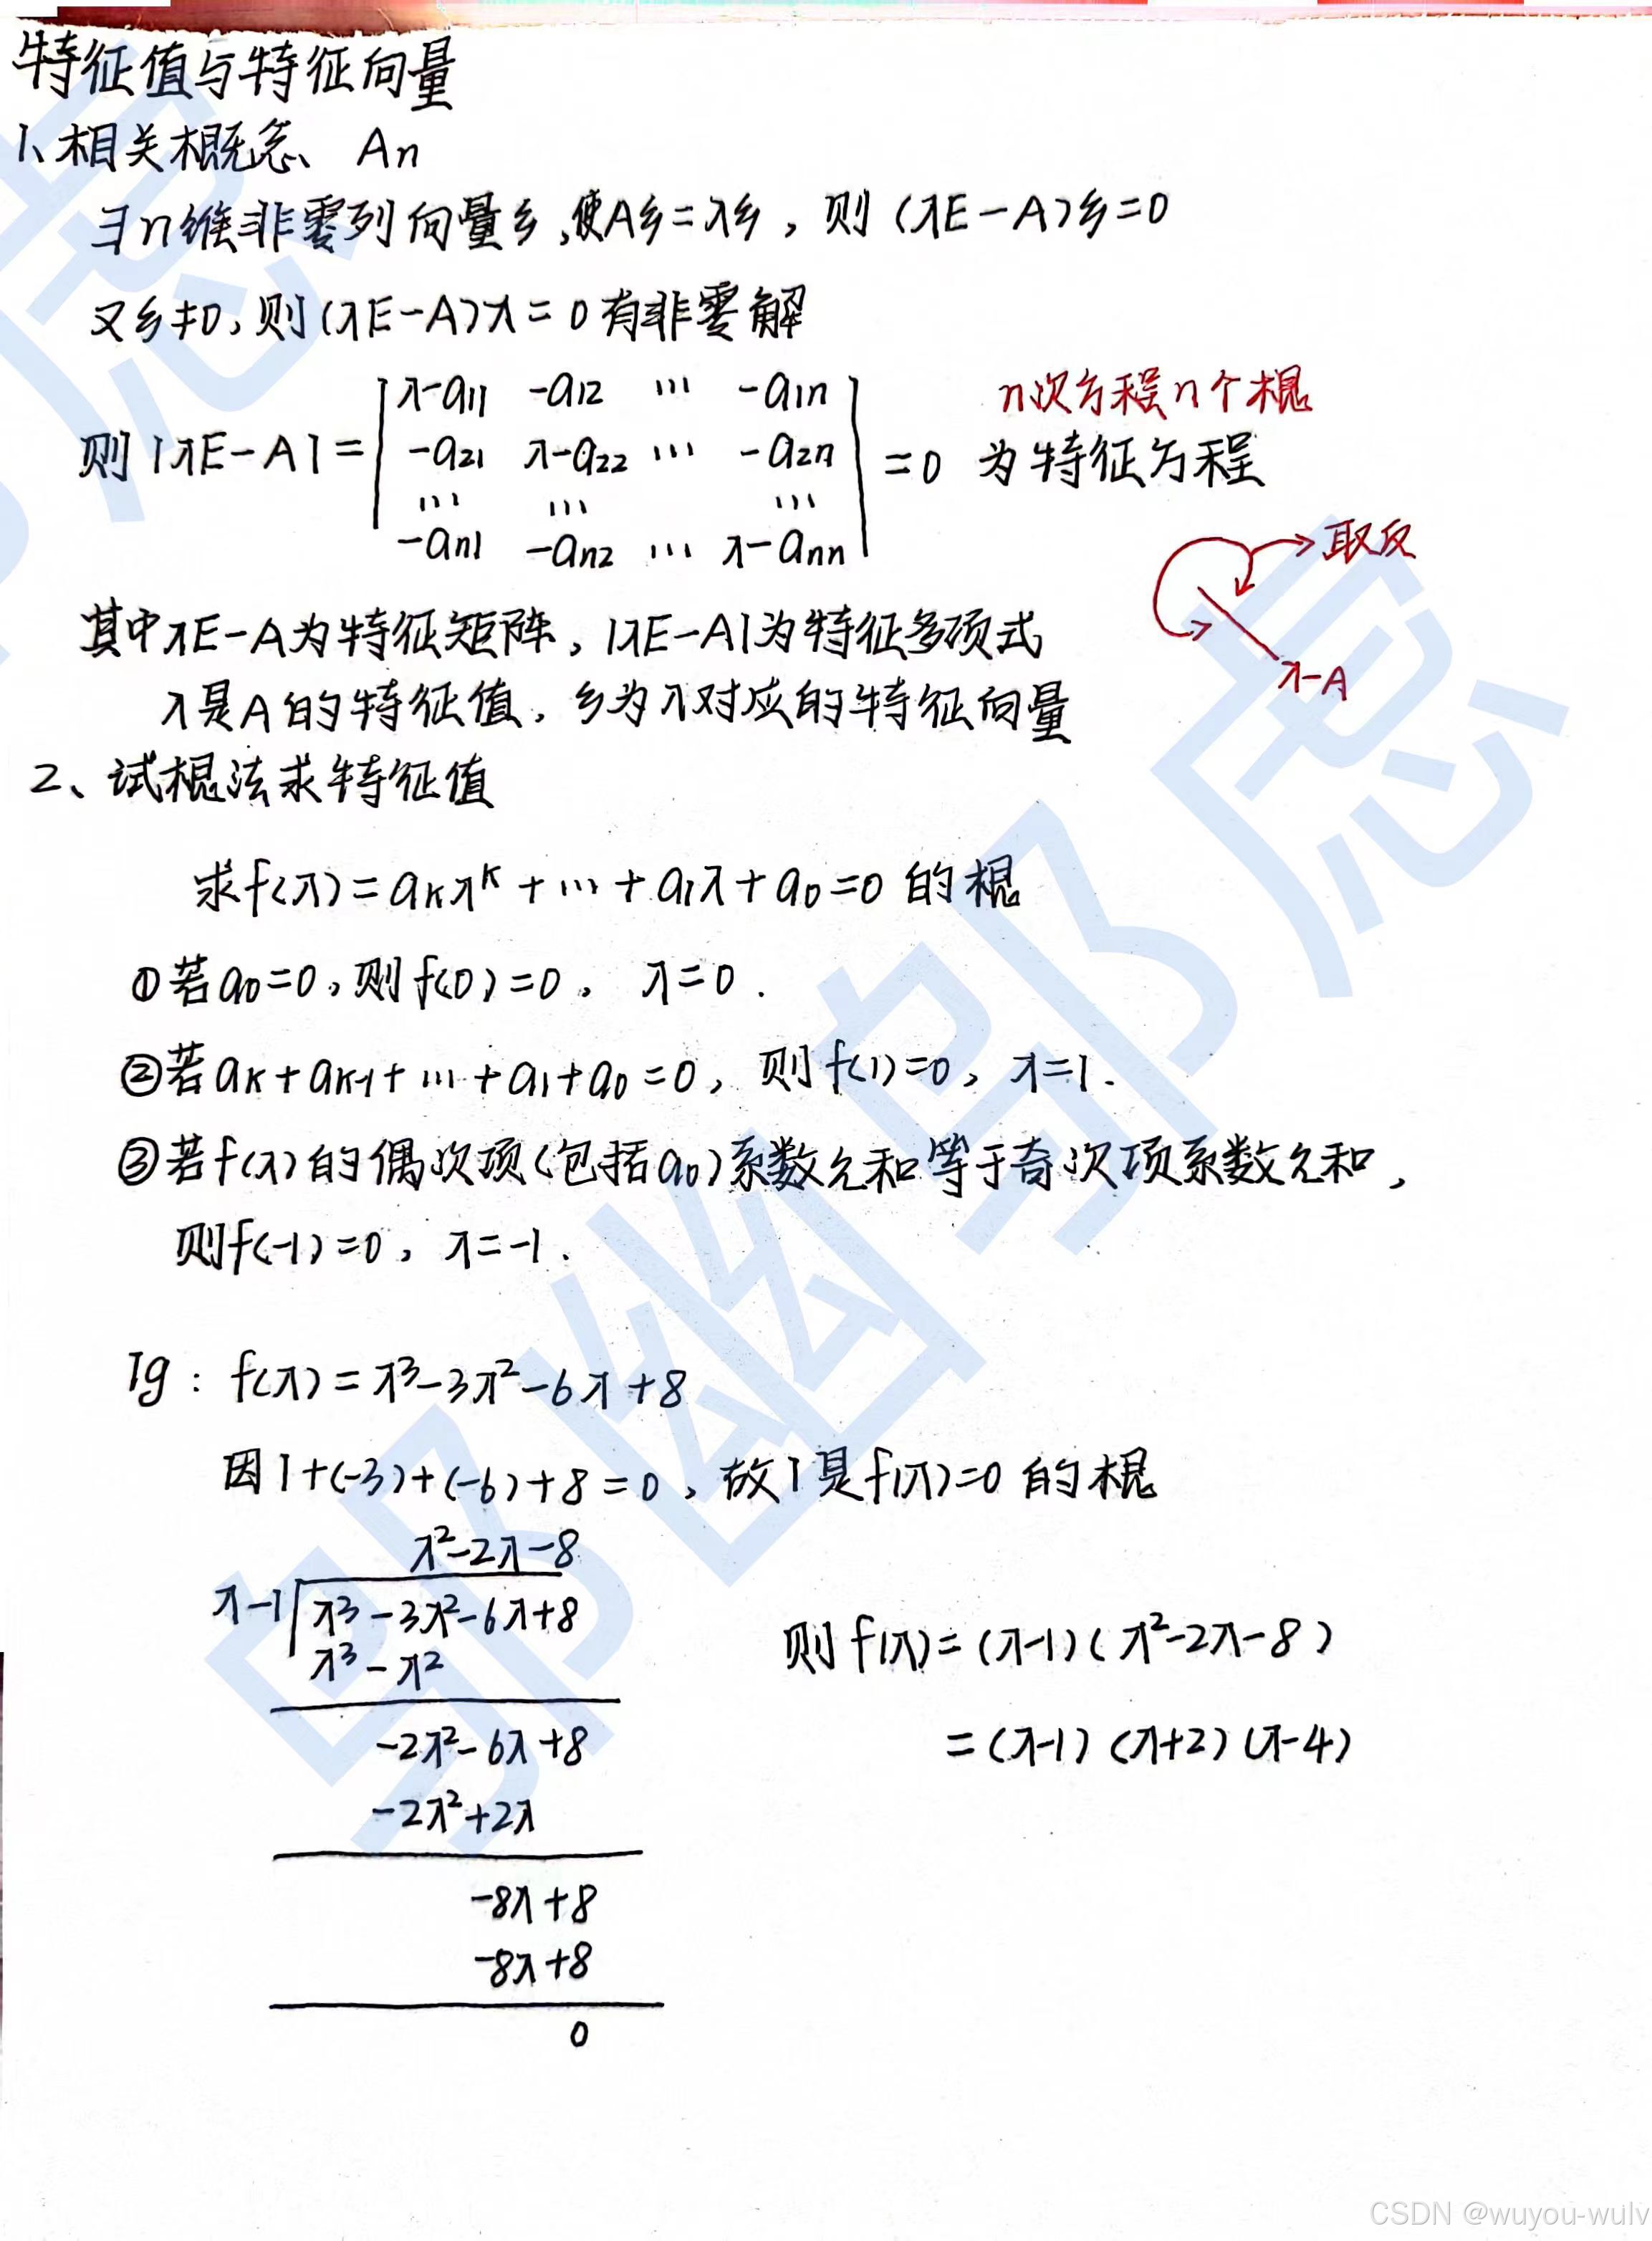 特征值与特征向量
1、相关概念、 An
∃n维非零列向量ξ,使Aξ=λξ, 则(λE-A)ξ=0
又ξ≠0,则(λE-A)λ=0有非零解
n次方程n个根
则|λE-A|=
λ-a11 -a12 … -a1n
-a21 λ-a22 … -a2n
… … …
-an1 -an2 … λ-ann
=0 为特征方程
取反
λ-A
其中λE-A为特征矩阵,|λE-A|为特征多项式
λ是A的特征值,ξ为λ对应的特征向量
2、试根法求特征值
求f(λ)=aₖλᵏ+…+a₁λ+a₀=0 的根
①若a₀=0,则f(0)=0, λ=0.
②若aₖ+aₖ₋₁+…+a₁+a₀=0, 则f(1)=0, λ=1.
③若f(λ)的偶次项(包括a₀)系数之和等于奇次项系数之和,
则f(-1)=0, λ=-1.
Ig: f(λ)=λ³-3λ²-6λ+8
因1+(-3)+(-6)+8=0,故1是f(λ)=0的根
λ²-2λ-8
λ-1 λ³-3λ²-6λ+8
λ³-λ²
-2λ²-6λ+8
-2λ²+2λ
-8λ+8
-8λ+8
0
则f(λ)=(λ-1)(λ²-2λ-8)
=(λ-1)(λ+2)(λ-4)
邬幽邬虑
CSDN @wuyou-wulv